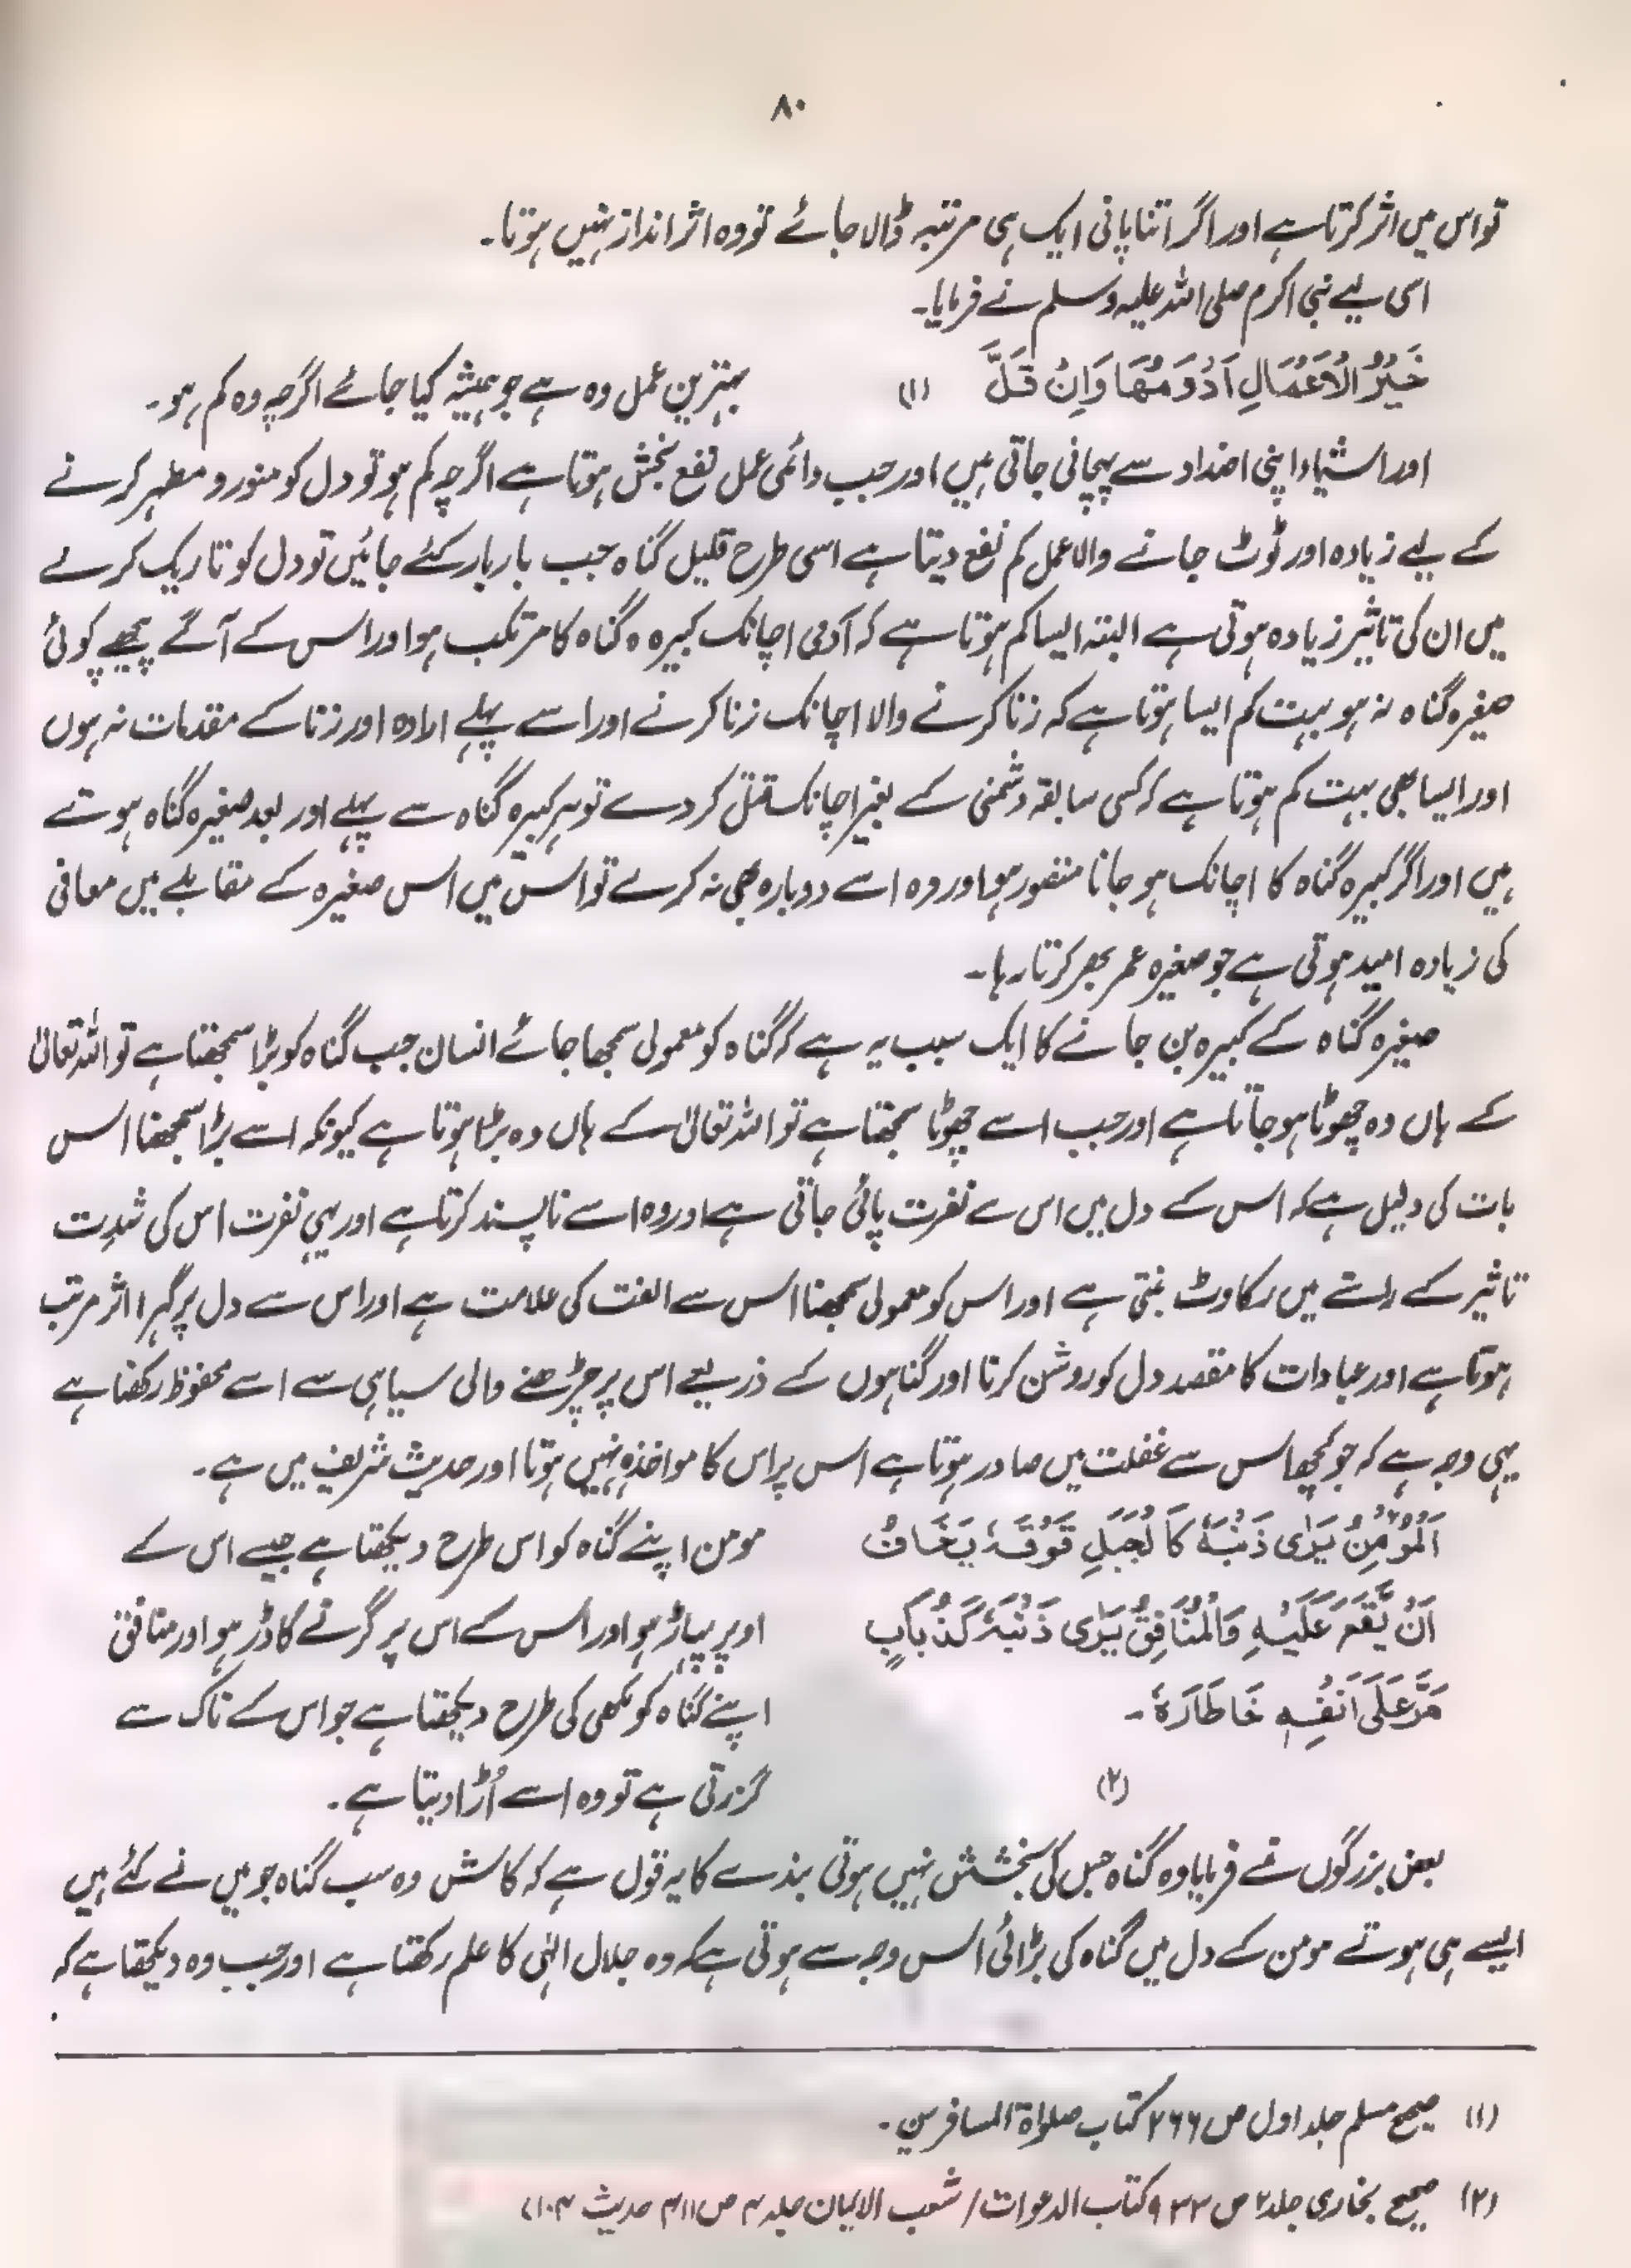 ۸۰
تو اس میں اثر کرتا ہے اور اگر اتنا پانی ایک ہی مرتبہ ڈالا جائے تو وہ اثر انداز نہیں ہوتا۔
اسی لیے نبی اکرم صلی اللہ علیہ وسلم نے فرمایا۔
خَيْرُ الْاَعْمَالِ اَدْوَمُهَا وَاِنْ قَلَّ (۱) بہترین عمل وہ ہے جو ہمیشہ کیا جائے اگرچہ وہ کم ہو۔
اور اشیاء اپنی اضداد سے پہچانی جاتی ہیں اور جب دائمی عمل نفع بخش ہوتا ہے اگرچہ کم ہو تو دل کو منور و مطہر کرنے
کے لیے زیادہ اور ٹوٹ جانے والا عمل کم نفع دیتا ہے اسی طرح قلیل گناہ جب بار بار کئے جائیں تو دل کو تاریک کرنے
میں ان کی تاثیر زیادہ ہوتی ہے البتہ ایسا کم ہوتا ہے کہ آدمی اچانک کبیرہ گناہ کا مرتکب ہو اور اس کے آگے پیچھے کوئی
صغیرہ گناہ نہ ہو بہت کم ایسا ہوتا ہے کہ زنا کرنے والا اچانک زنا کرے اور اسے پہلے ارادہ اور زنا کے مقدمات نہ ہوں
اور ایسا بھی بہت کم ہوتا ہے کہ کسی سابقہ دشمنی کے بغیر اچانک قتل کر دے تو ہر کبیرہ گناہ سے پہلے اور بعد صغیرہ گناہ ہوتے
ہیں اور اگر کبیرہ گناہ کا اچانک ہو جانا متصور ہو اور وہ اسے دوبارہ بھی نہ کرے تو اس میں اس صغیرہ کے مقابلے میں معافی
کی زیادہ امید ہوتی ہے جو صغیرہ عمر بھر کرتا رہا۔
صغیرہ گناہ کے کبیرہ بن جانے کا ایک سبب یہ ہے کہ گناہ کو معمولی سمجھا جائے انسان جب گناہ کو بڑا سمجھتا ہے تو اللہ تعالیٰ
کے ہاں وہ چھوٹا ہو جاتا ہے اور جب اسے چھوٹا سمجھتا ہے تو اللہ تعالیٰ کے ہاں وہ بڑا ہوتا ہے کیونکہ اسے بڑا سمجھنا اس
بات کی دلیل ہے کہ اس کے دل میں اس سے نفرت پائی جاتی ہے اور وہ اسے ناپسند کرتا ہے اور یہی نفرت اس کی شدت
تاثیر کے راستے میں رکاوٹ بنتی ہے اور اس کو معمولی سمجھنا اس سے الفت کی علامت ہے اور اس سے دل پر گہرا اثر مرتب
ہوتا ہے اور عبادات کا مقصد دل کو روشن کرنا اور گناہوں کے ذریعے اس پر چڑھنے والی سیاہی سے اسے محفوظ رکھنا ہے
یہی وجہ ہے کہ جو کچھ اس سے غفلت میں صادر ہوتا ہے اس پر اس کا مواخذہ نہیں ہوتا اور حدیث شریف میں ہے۔
اَلْمُؤْمِنُ يَرٰى ذَنْبَهٗ كَالْجَبَلِ فَوْقَهٗ يَخَافُ مومن اپنے گناہ کو اس طرح دیکھتا ہے جیسے اس کے
اَنْ يَّقَعَ عَلَيْهِ وَالْمُنَافِقُ يَرٰى ذَنْبَهٗ كَذُبَابٍ اوپر پہاڑ ہو اور اس کے اس پر گرنے کا ڈر ہو اور منافق
مَرَّ عَلٰى اَنْفِهٖ فَاَطَارَهٗ۔ اپنے گناہ کو مکھی کی طرح دیکھتا ہے جو اس کے ناک سے
(۲) گزرتی ہے تو وہ اسے اُڑا دیتا ہے۔
بعض بزرگوں نے فرمایا وہ گناہ جس کی بخشش نہیں ہوتی بندے کا یہ قول ہے کہ کاش وہ سب گناہ جو میں نے کئے ہیں
ایسے ہی ہوتے مومن کے دل میں گناہ کی بڑائی اس وجہ سے ہوتی ہے کہ وہ جلال الٰہی کا علم رکھتا ہے اور جب وہ دیکھتا ہے کہ
(۱) صحیح مسلم جلد اول ص ۲۶۶ کتاب صلوٰۃ المسافرین۔
(۲) صحیح بخاری جلد ۲ ص ۹۳۳ کتاب الدعوات / شعب الایمان جلد ۷ ص ۴۱۱ حدیث ۷۱۰۴